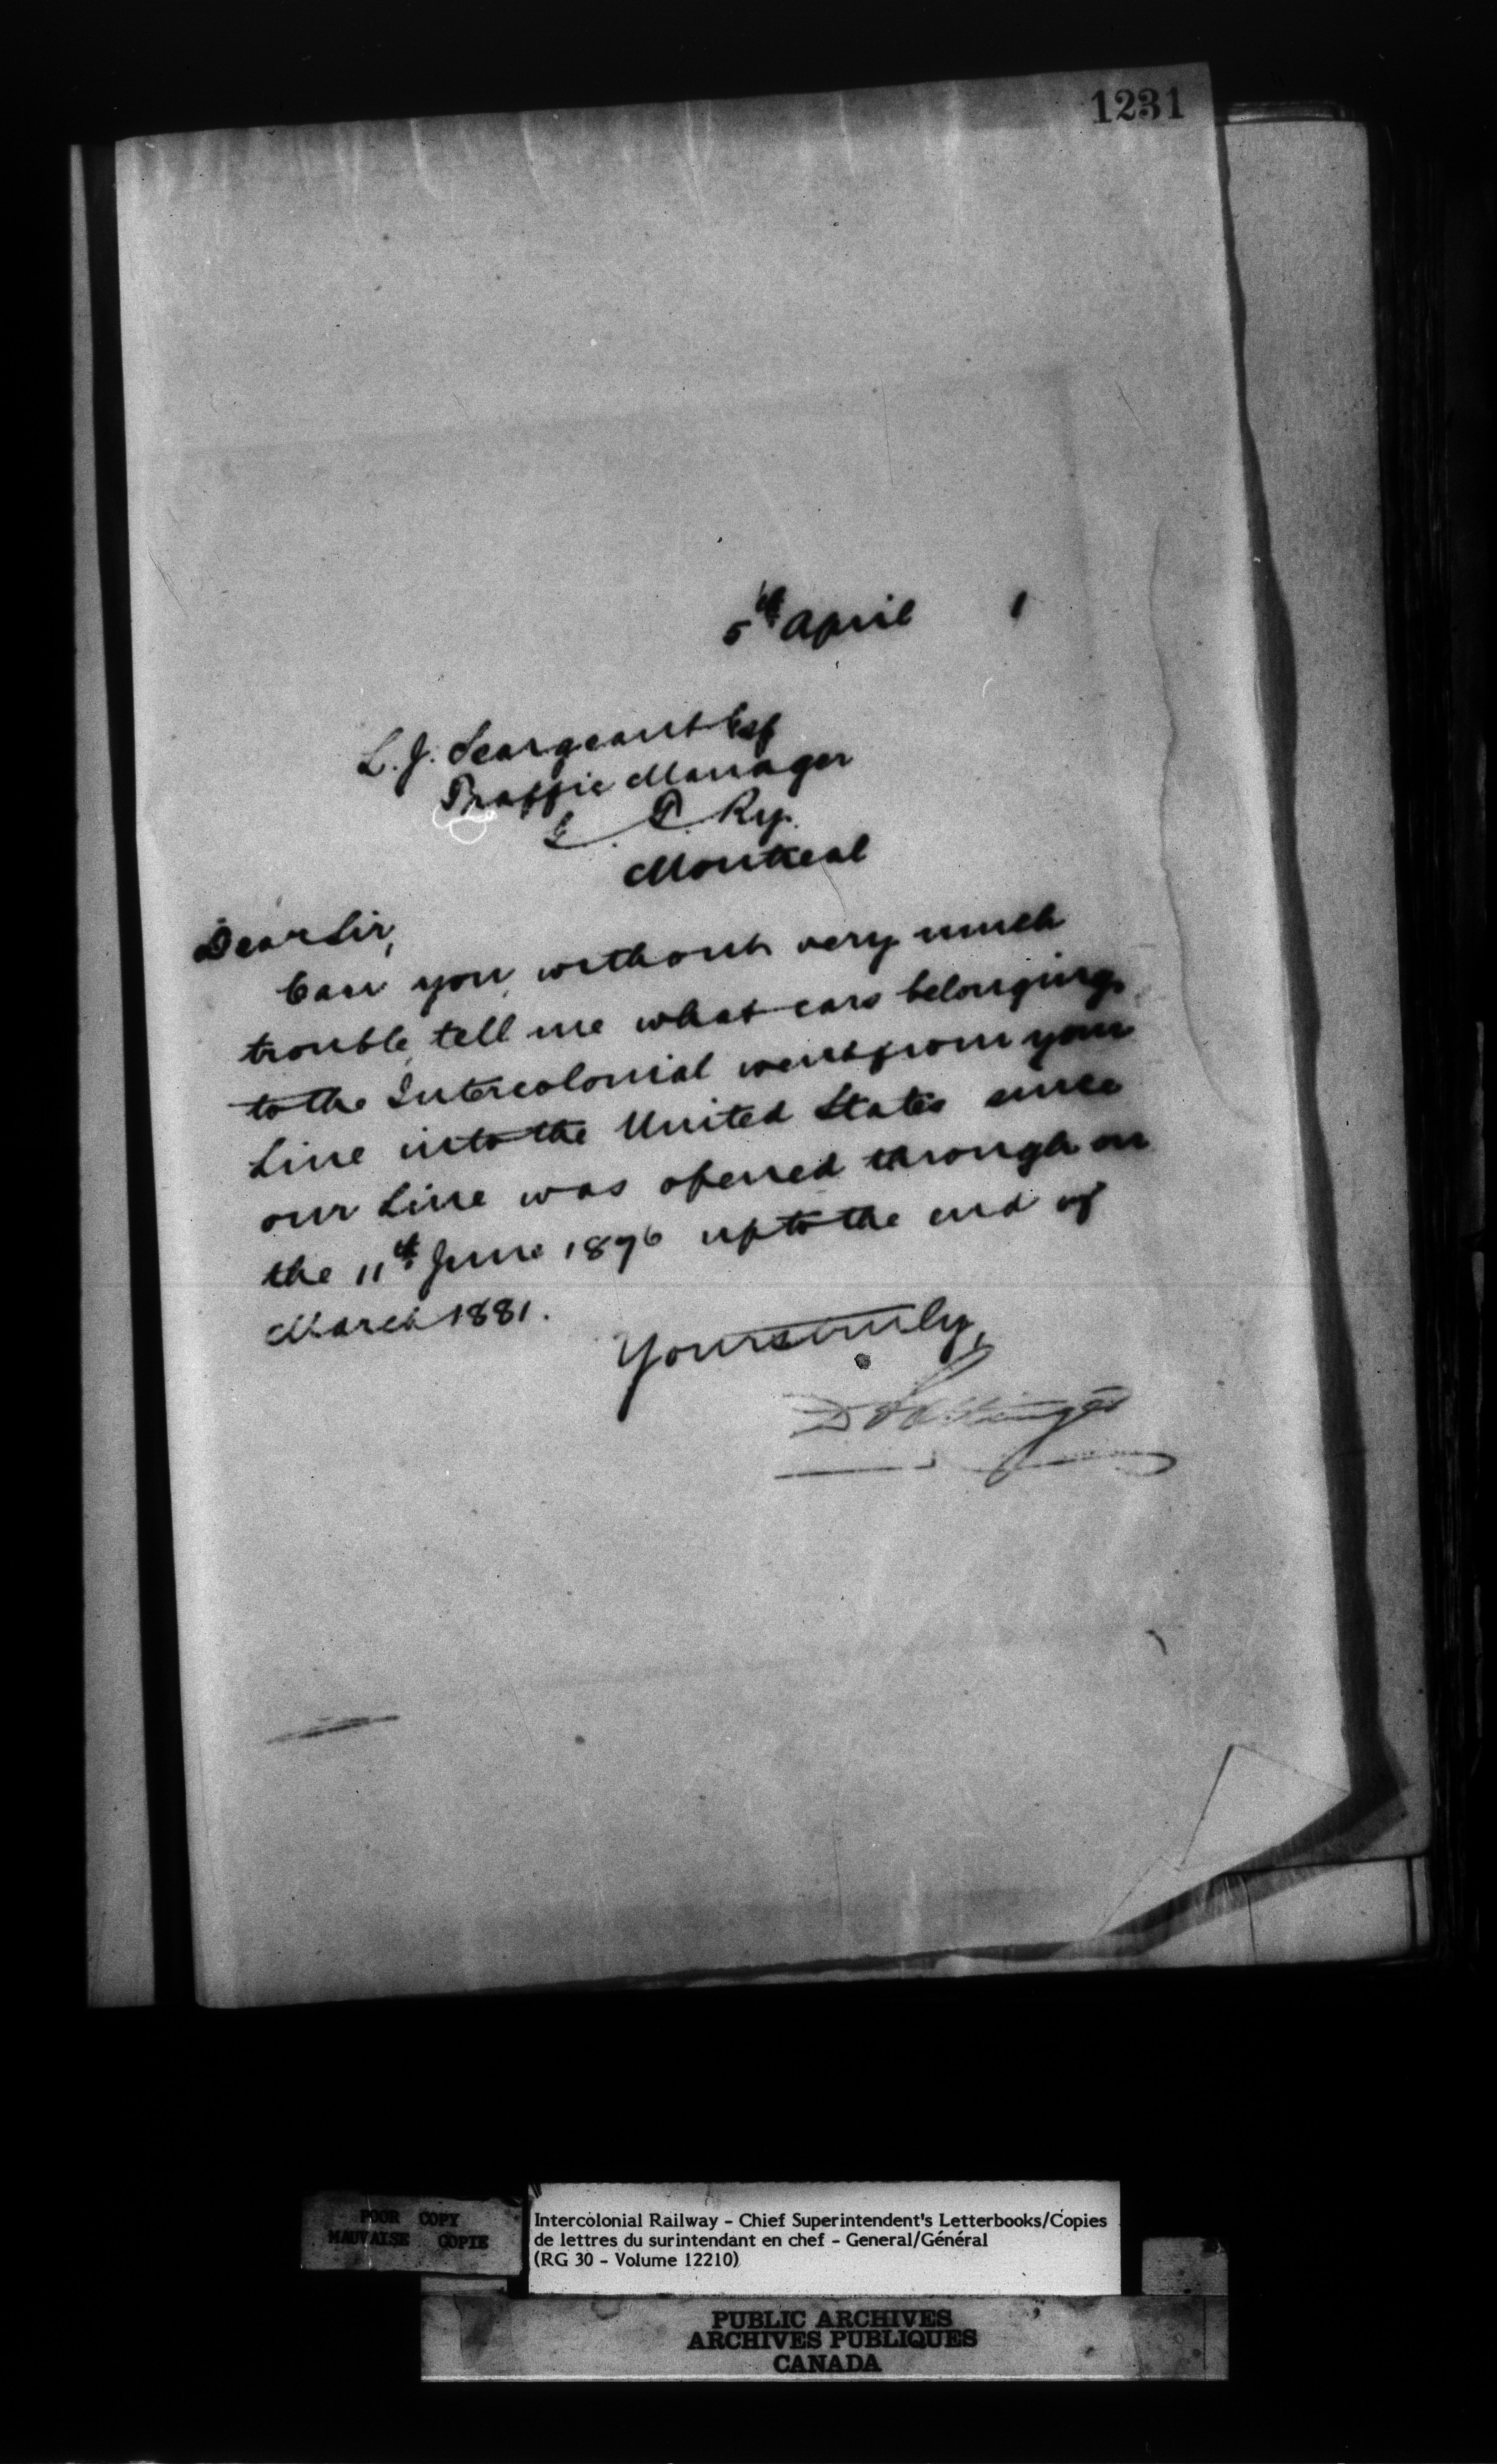 1231
5th April 1
L. J. Seargeant Esq
Traffic Manager
G. T. Ry.
Montreal
Dear Sir,
Can you, without very much
trouble, tell me what cars belonging
to the Intercolonial went from your
Line into the United States since
our Line was opened through on
the 11th June 1876 up to the end of
March 1881.
Yours truly,
D Pottinger
POOR COPY
MAUVAISE COPIE
Intercolonial Railway - Chief Superintendent's Letterbooks/Copies
de lettres du surintendant en chef - General/Général
(RG 30 - Volume 12210)
PUBLIC ARCHIVES
ARCHIVES PUBLIQUES
CANADA